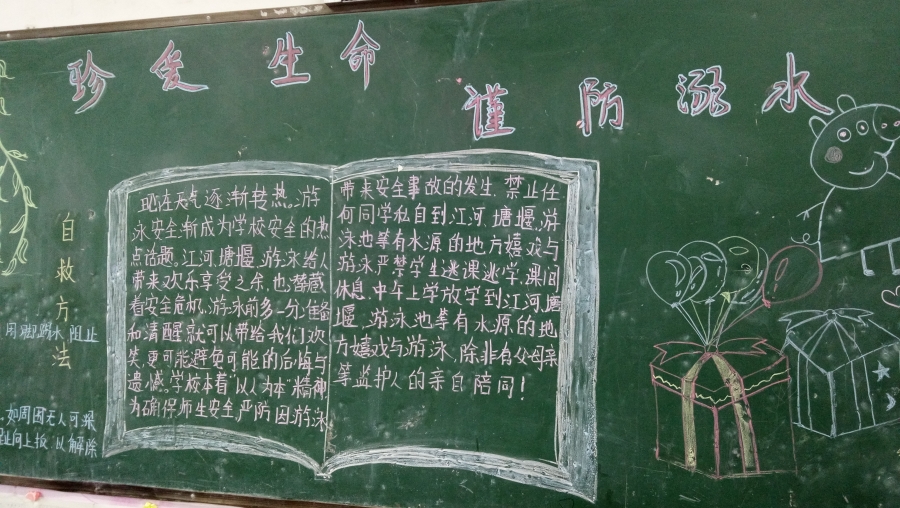 珍爱生命
谨防溺水
自救方法
用脚踢水 阻止
如周围无人可
趾向上扳 以解除
现在天气逐渐转热。游
泳安全渐成为学校安全的热
点话题。江河.塘堰.游泳给人
带来欢乐享受之余,也潜藏
着安全危机.游泳前多一分准备
和清醒.就可以带给我们欢
笑.更可能避免可能的后悔与
遗憾.学校本着"以人为本"精神
为确保师生安全.严防因游泳
带来安全事故的发生.禁止任
何同学私自到江河.塘堰.游
泳池等有水源的地方嬉戏与
游泳.严禁学生逃课逃学.课间
休息.中午上学放学到江河.塘
堰.游泳池等有水源的地
方嬉戏与游泳.除非有父母亲
等监护人的亲自陪同!